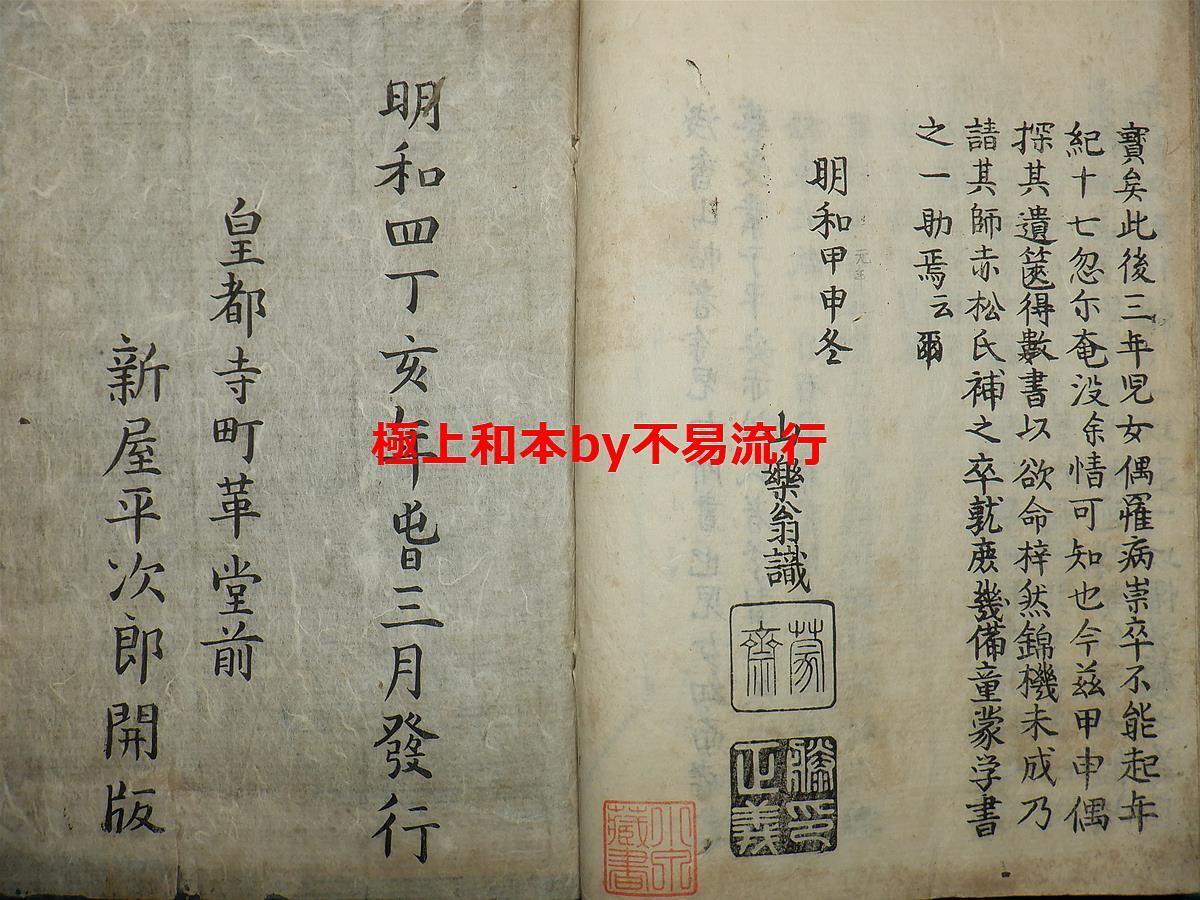 寳矣此後三年児女偶罹病祟卒不能起年
紀十七忽尓奄没余情可知也今茲甲申偶
探其遺篋得數書以欲命梓然錦機未成乃
請其師赤松氏補之卒就庶幾備童蒙学書
之一助焉云爾
明和甲申冬
元年
山樂翁識
蒙齋
正義
明和四丁亥年旹三月發行
皇都寺町革堂前
新屋平次郎開版
藏書
極上和本by不易流行